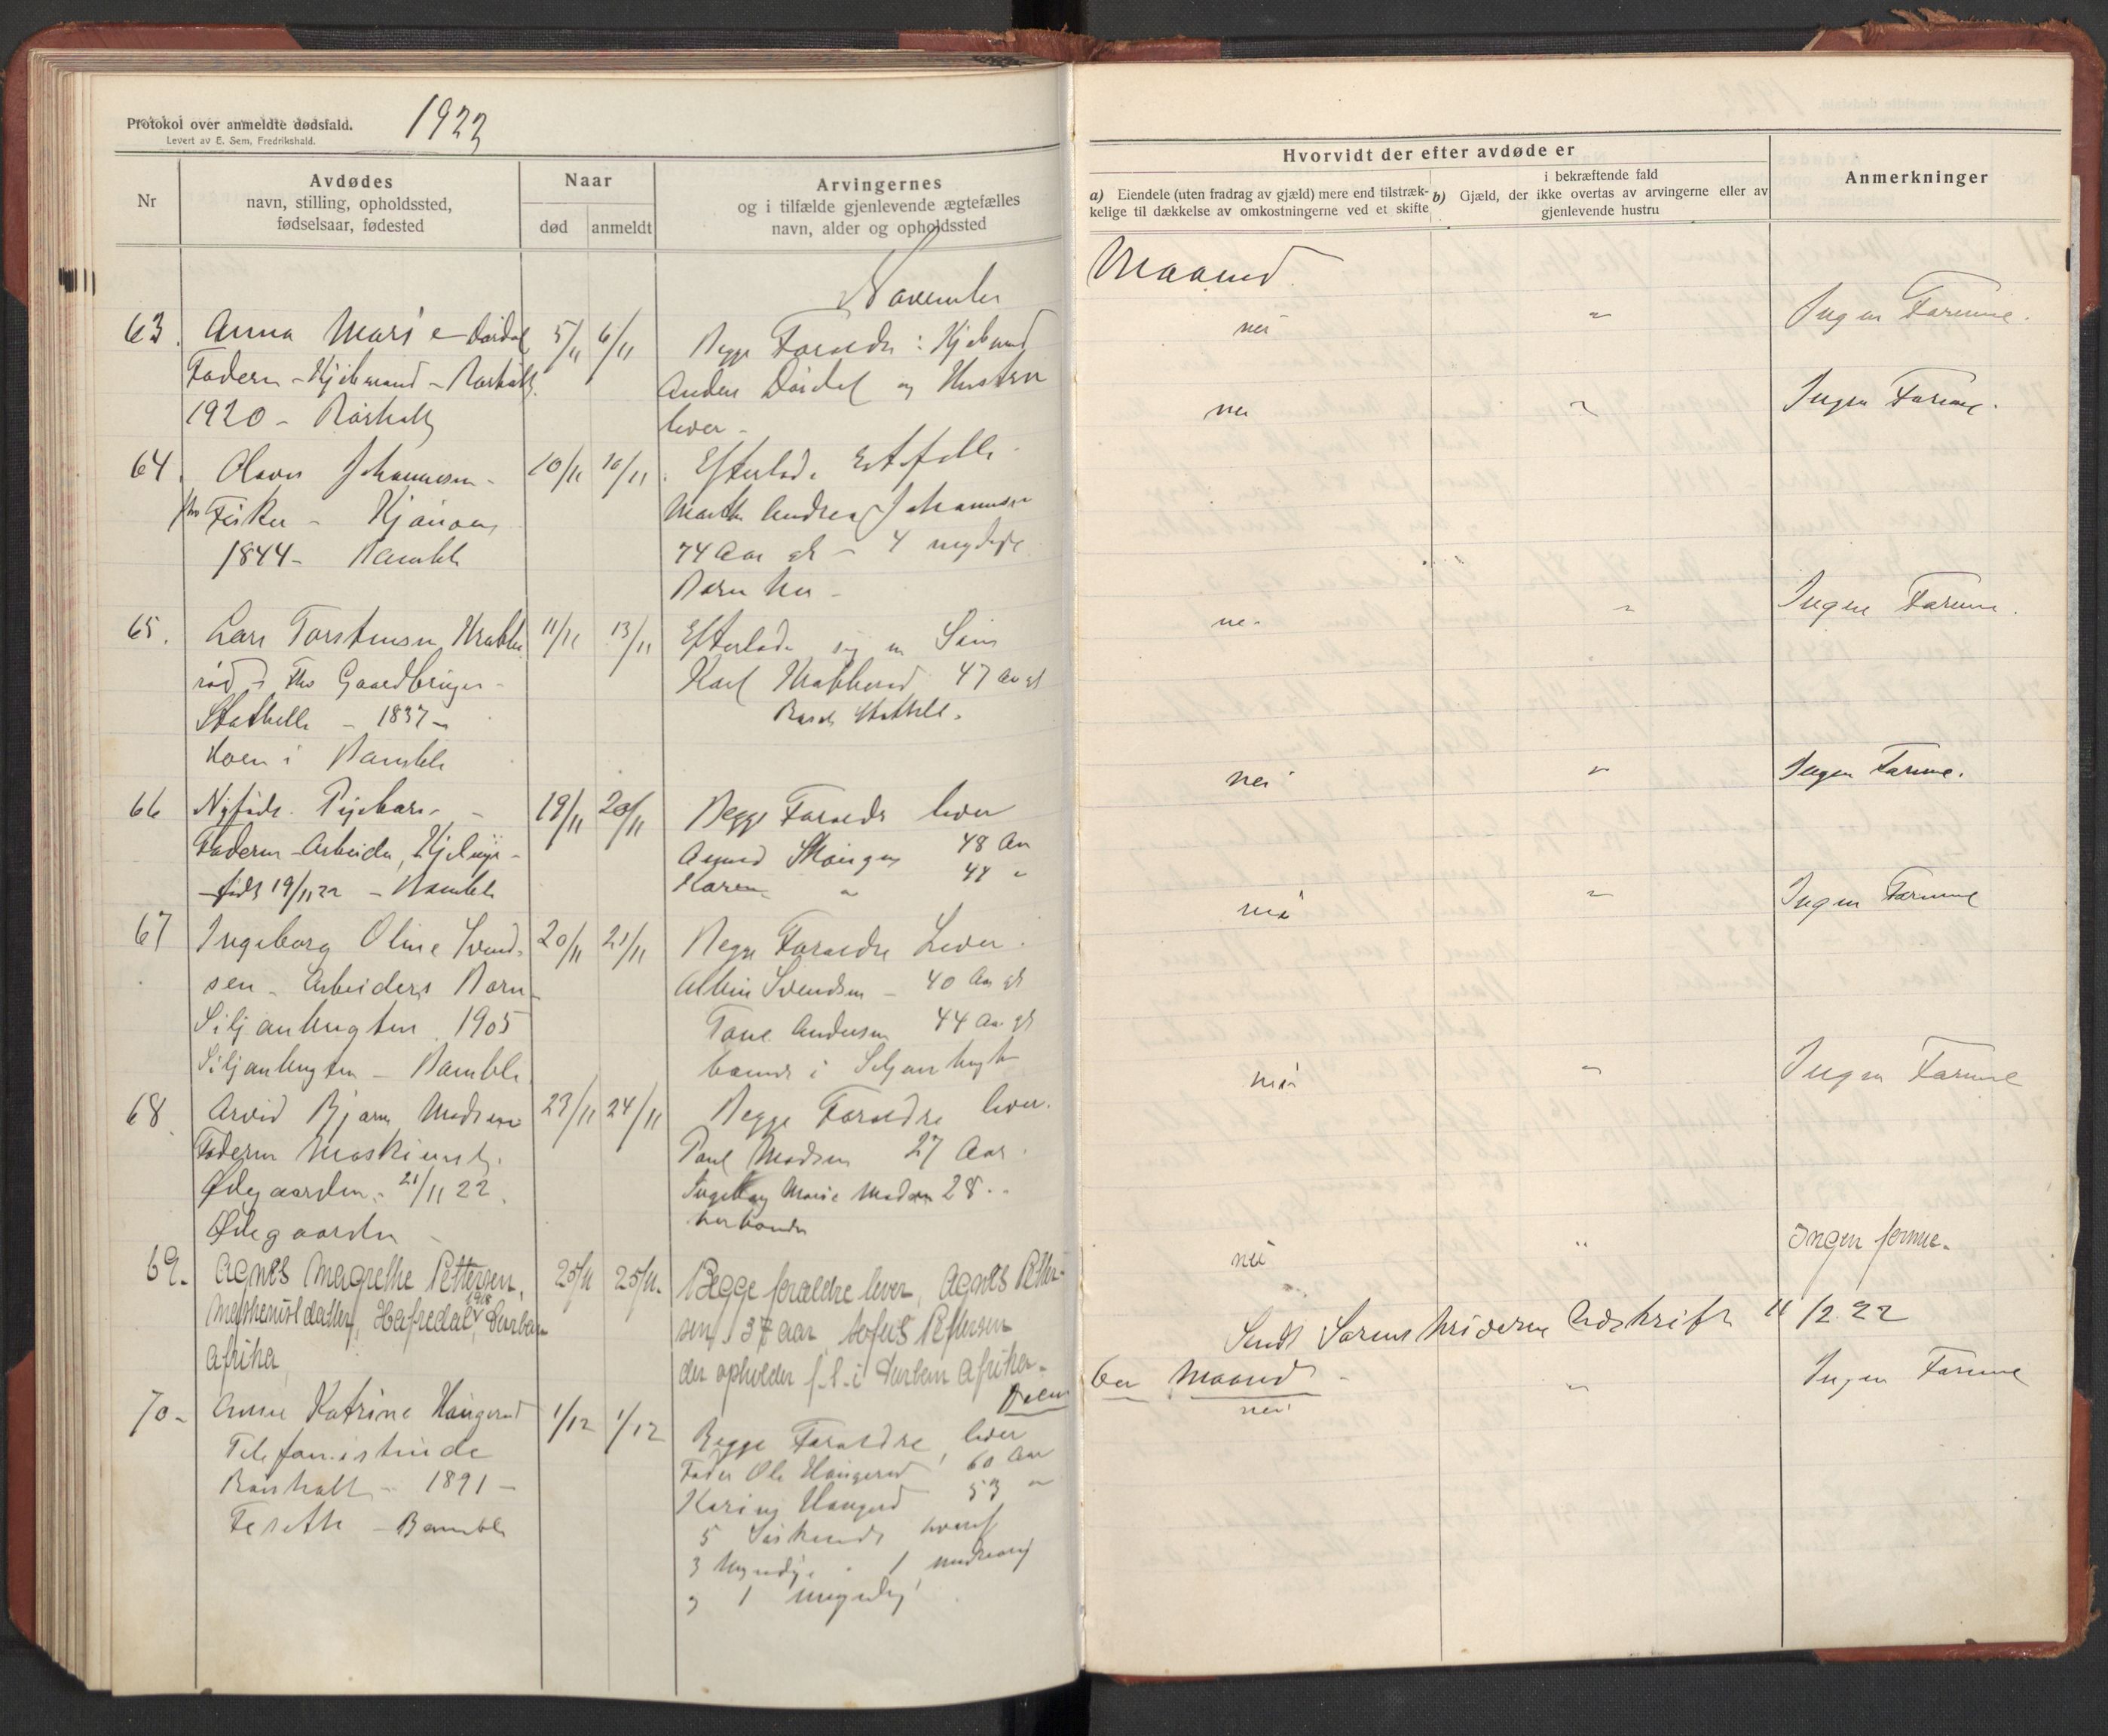 Protokol over anmeldte dødsfald.
Levert av E. Sem, Fredrikshald.
1922
Nr
Avdødes
navn, stilling, opholdssted,
fødselsaar, fødested
Naar
død
anmeldt
Arvingernes
og i tilfælde gjenlevende ægtefælles
navn, alder og opholdssted
Hvorvidt der efter avdøde er
a) Eiendele (uten fradrag av gjæld) mere end tilstræk-
kelige til dækkelse av omkostningerne ved et skifte
i bekræftende fald
b) Gjæld, der ikke overtas av arvingerne eller av
gjenlevende hustru
Anmerkninger
November
Maaned
63. Anna Marie Dørdal 5/11 6/11
Faderen - Kjøbmand -
1920 - Rørholt
Begge Forældre: Kjøbmand
Anders Dørdal og Hustru
lever -
nei " Ingen Formue.
64. Olaves Johannesen - 10/11 10/11
fhv Fisker -
1844 - Bamble
Efterlade
Marthe Andrea Johannesen
74 Aar gl - 4 myndige
Børn
nei " Ingen Formue.
65. Lars Torstensen Krabbe 11/11 13/11
rød - Fhv Gaardbruger -
Stathelle - 1837 -
i Bamble
Efterlade sig en Søn
Karl Krabberød 47 Aar gl
Stathelle.
nei " Ingen Formue.
66 Nyføde Pigebarn - 19/11 20/11
Faderen - Arbeider,
født 19/11 22 - Bamble
Begge Forældre lever
48 Aar
Karen " "
nei " Ingen Formue.
67 Ingeborg Oline Svend- 20/11 21/11
sen - Arbeiders Barn -
Siljanbugten 1905
Siljanbugten - Bamble
Begge Forældre Lever.
Albin Svendsen - 40 Aar gl
Tone Andersen 44 Aar gl
i Siljanbugt
nei " Ingen Formue
68. Arvid Bjarne Madsen 23/11 24/11
Faderen Maskinist
Ødegaarden - 21/11 22.
Ødegaarden
Begge Forældre lever.
Paul Madsen 27 Aar.
Ingeborg Marie Madsen 28 "
nei " Ingen Formue
69. Agnes Magrethe Pettersen, 25/11 25/11.
Maskenistdatter, Hafredal, 1918 Durban
Afrika
Begge forældre lever, Agnes Petter-
sen, 37 aar, Sofus Pettersen
der opholder f.t. i Durban Afrika.
nei " Ingen formue.
Sendt Sorenskriveren Avskrift /12 22
Decem
ber Maaned
70. Anne Katrine Haugerud 1/12 1/12
Telefonistinde
Rørholt - 1891 -
- Bamble
Begge Forældre lever
Fader Ole Haugerud 60 Aar
Haugerud 53 "
5 Søskende hvoraf
3 Myndige - 1 mindreaarig
og 1 umyndig
nei " Ingen Formue